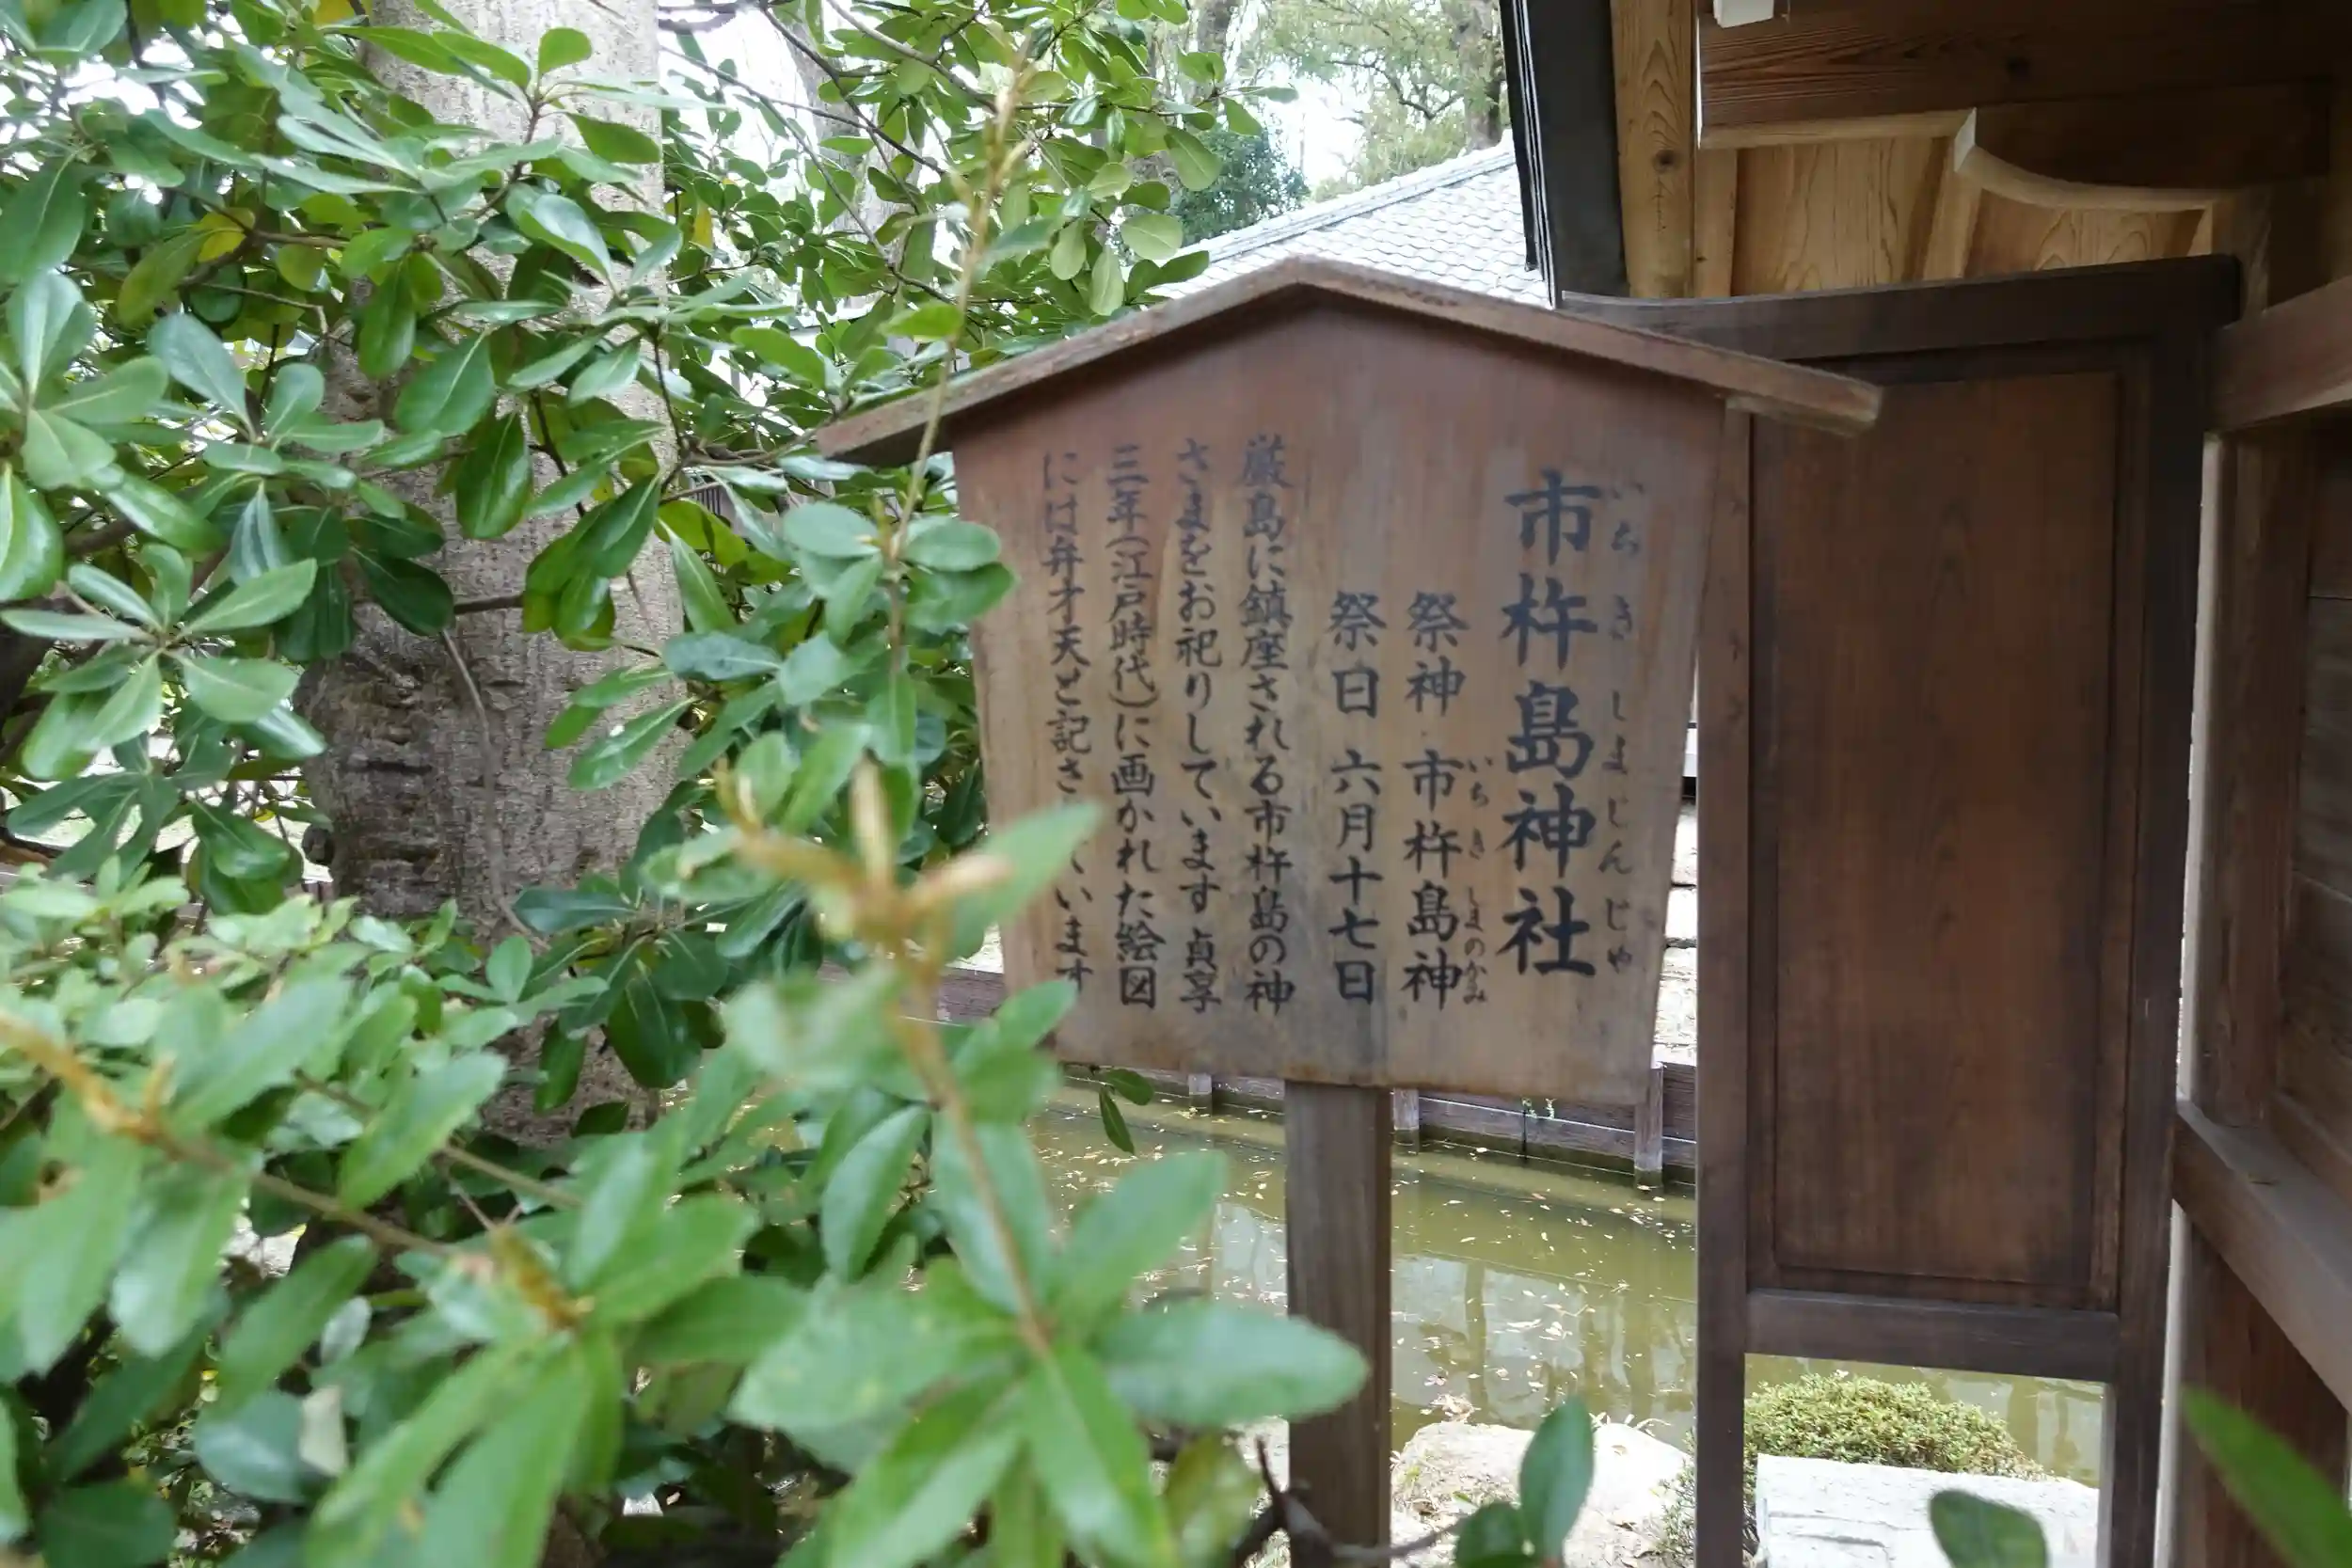 市杵島神社
いちきしまじんじゃ
祭神 市杵島神
いちきしまのかみ
祭日 六月十七日
厳島に鎮座される市杵島の神
さまをお祀りしています 貞享
三年(江戸時代)に画かれた絵図
には弁才天と記さ
います